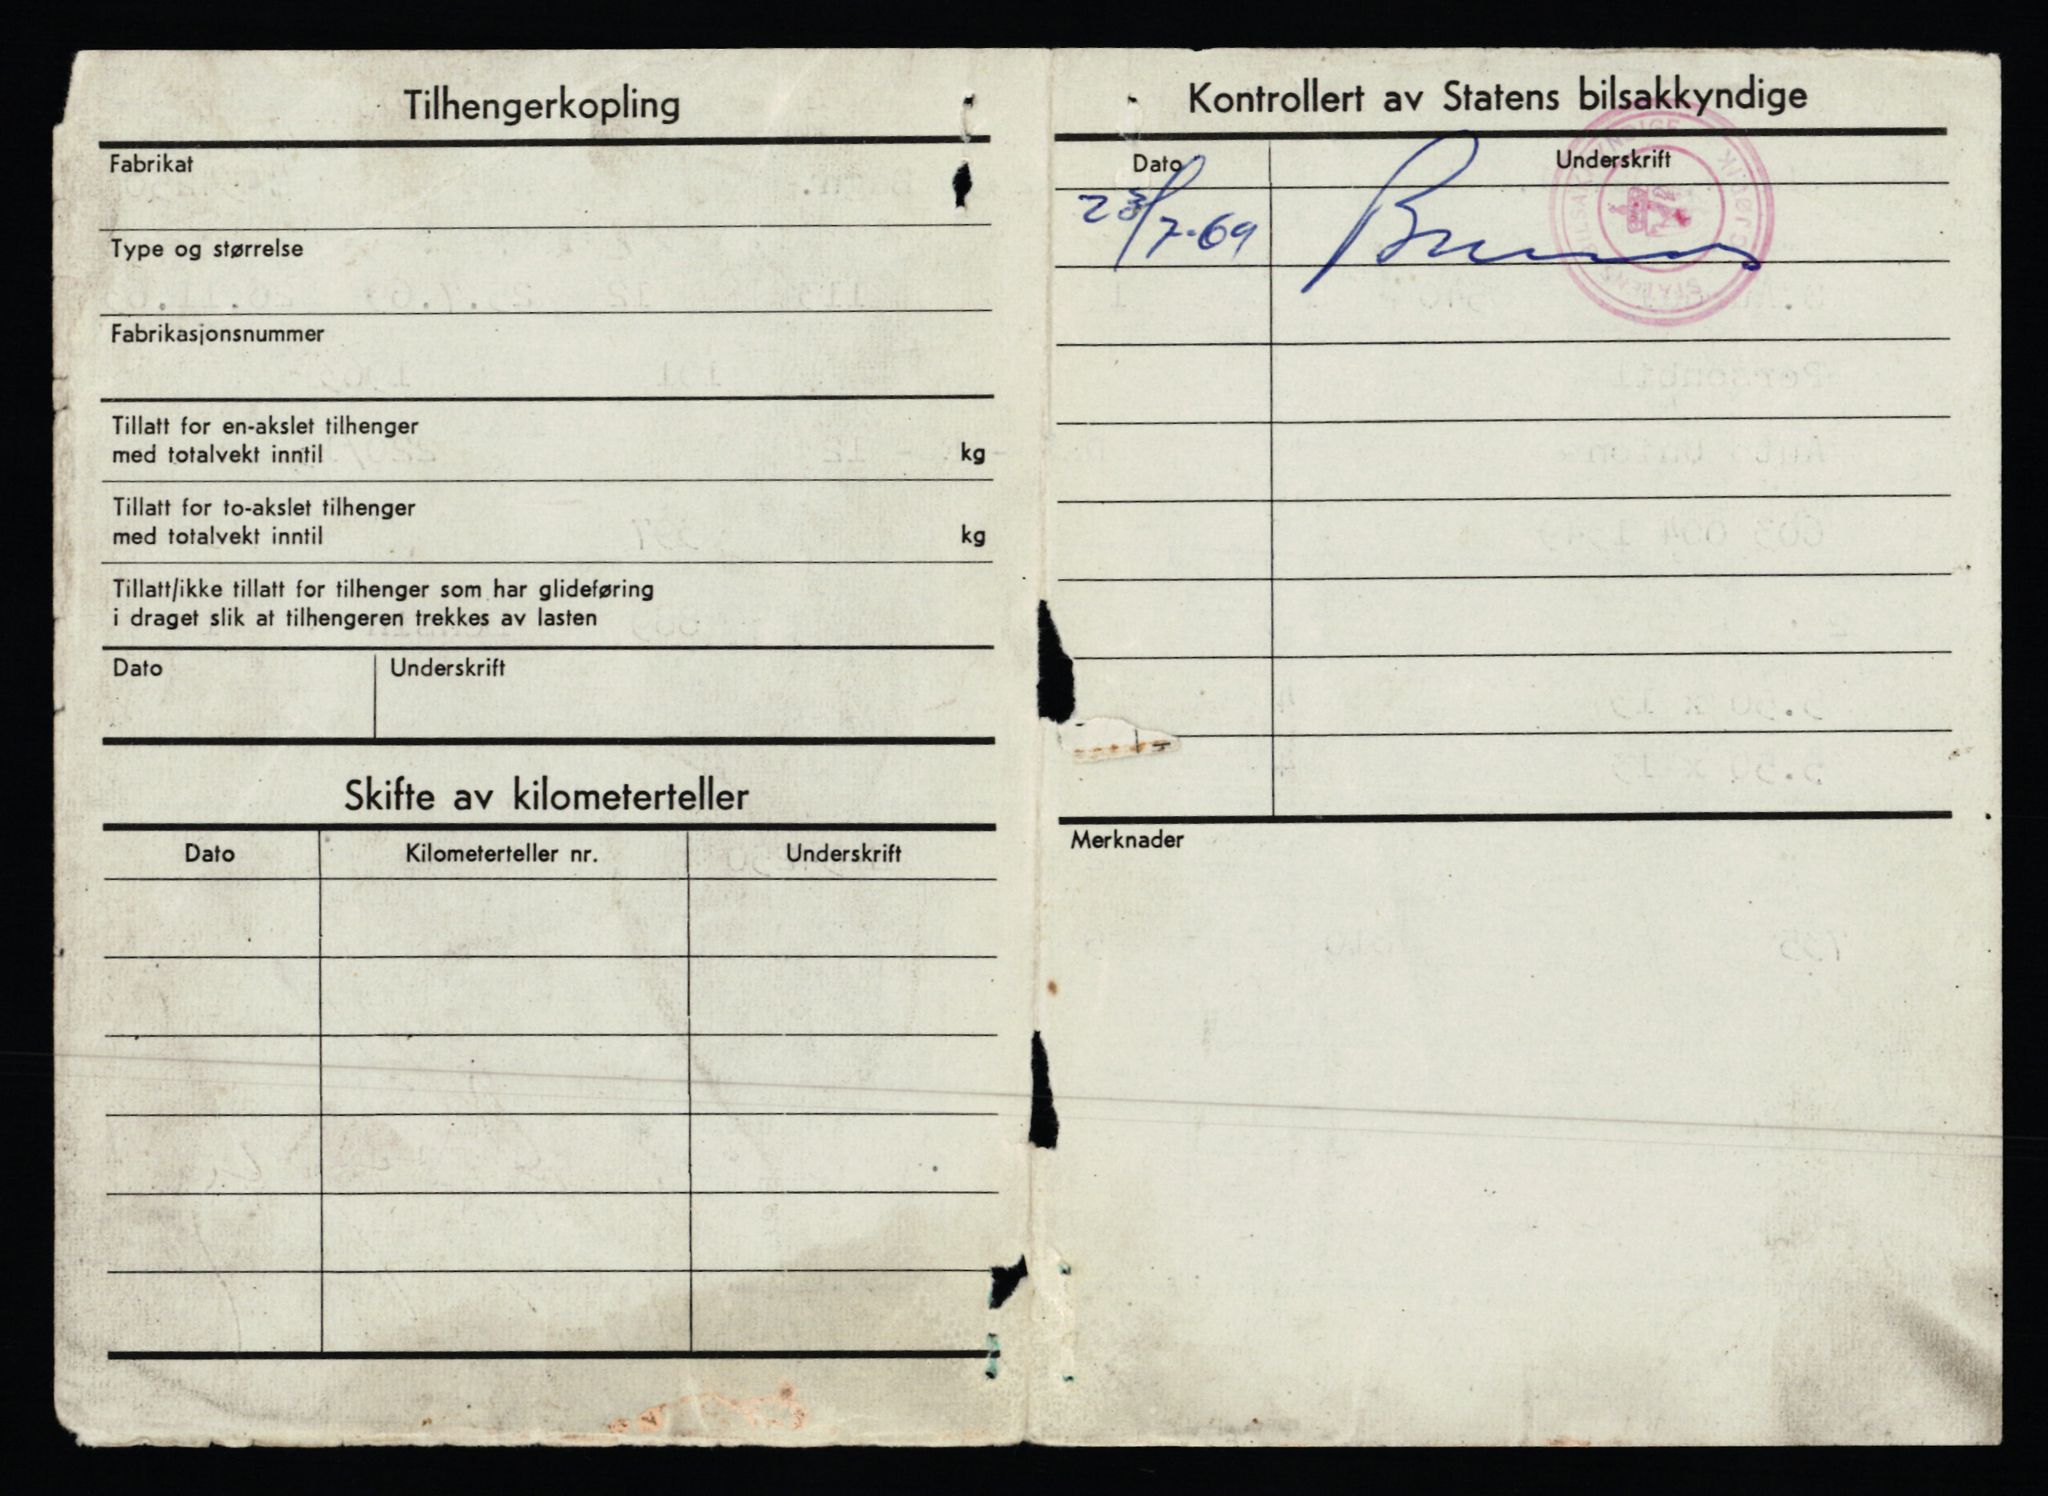 Tilhengerkopling
Fabrikat
Type og størrelse
Fabrikasjonsnummer
Tillatt for en-akslet tilhenger
med totalvekt inntil kg
Tillatt for to-akslet tilhenger
med totalvekt inntil kg
Tillatt/ikke tillatt for tilhenger som har glideføring
i draget slik at tilhengeren trekkes av lasten
Dato Underskrift
Skifte av kilometerteller
Dato Kilometerteller nr. Underskrift
Kontrollert av Statens bilsakkyndige
Dato Underskrift
/7-69
STATENS BILSAKKYNDIGE GJØVIK
Merknader